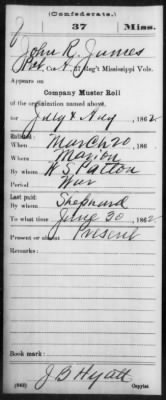 (Confederate.)
J 37 Miss.
John R. James
Pvt, Co. A, 37 Reg't Mississippi Vols.
Appears on
Company Muster Roll
of the organization named above,
for July & Aug, 1862
Enlisted:
When March 20, 186
Where Marion
By whom W. S. Patton
Period War
Last paid:
By whom Shephard
To what time June 30, 1862
Present or absent Present
Remarks:
Book mark:
J B Hyatt
(642) Copyist.